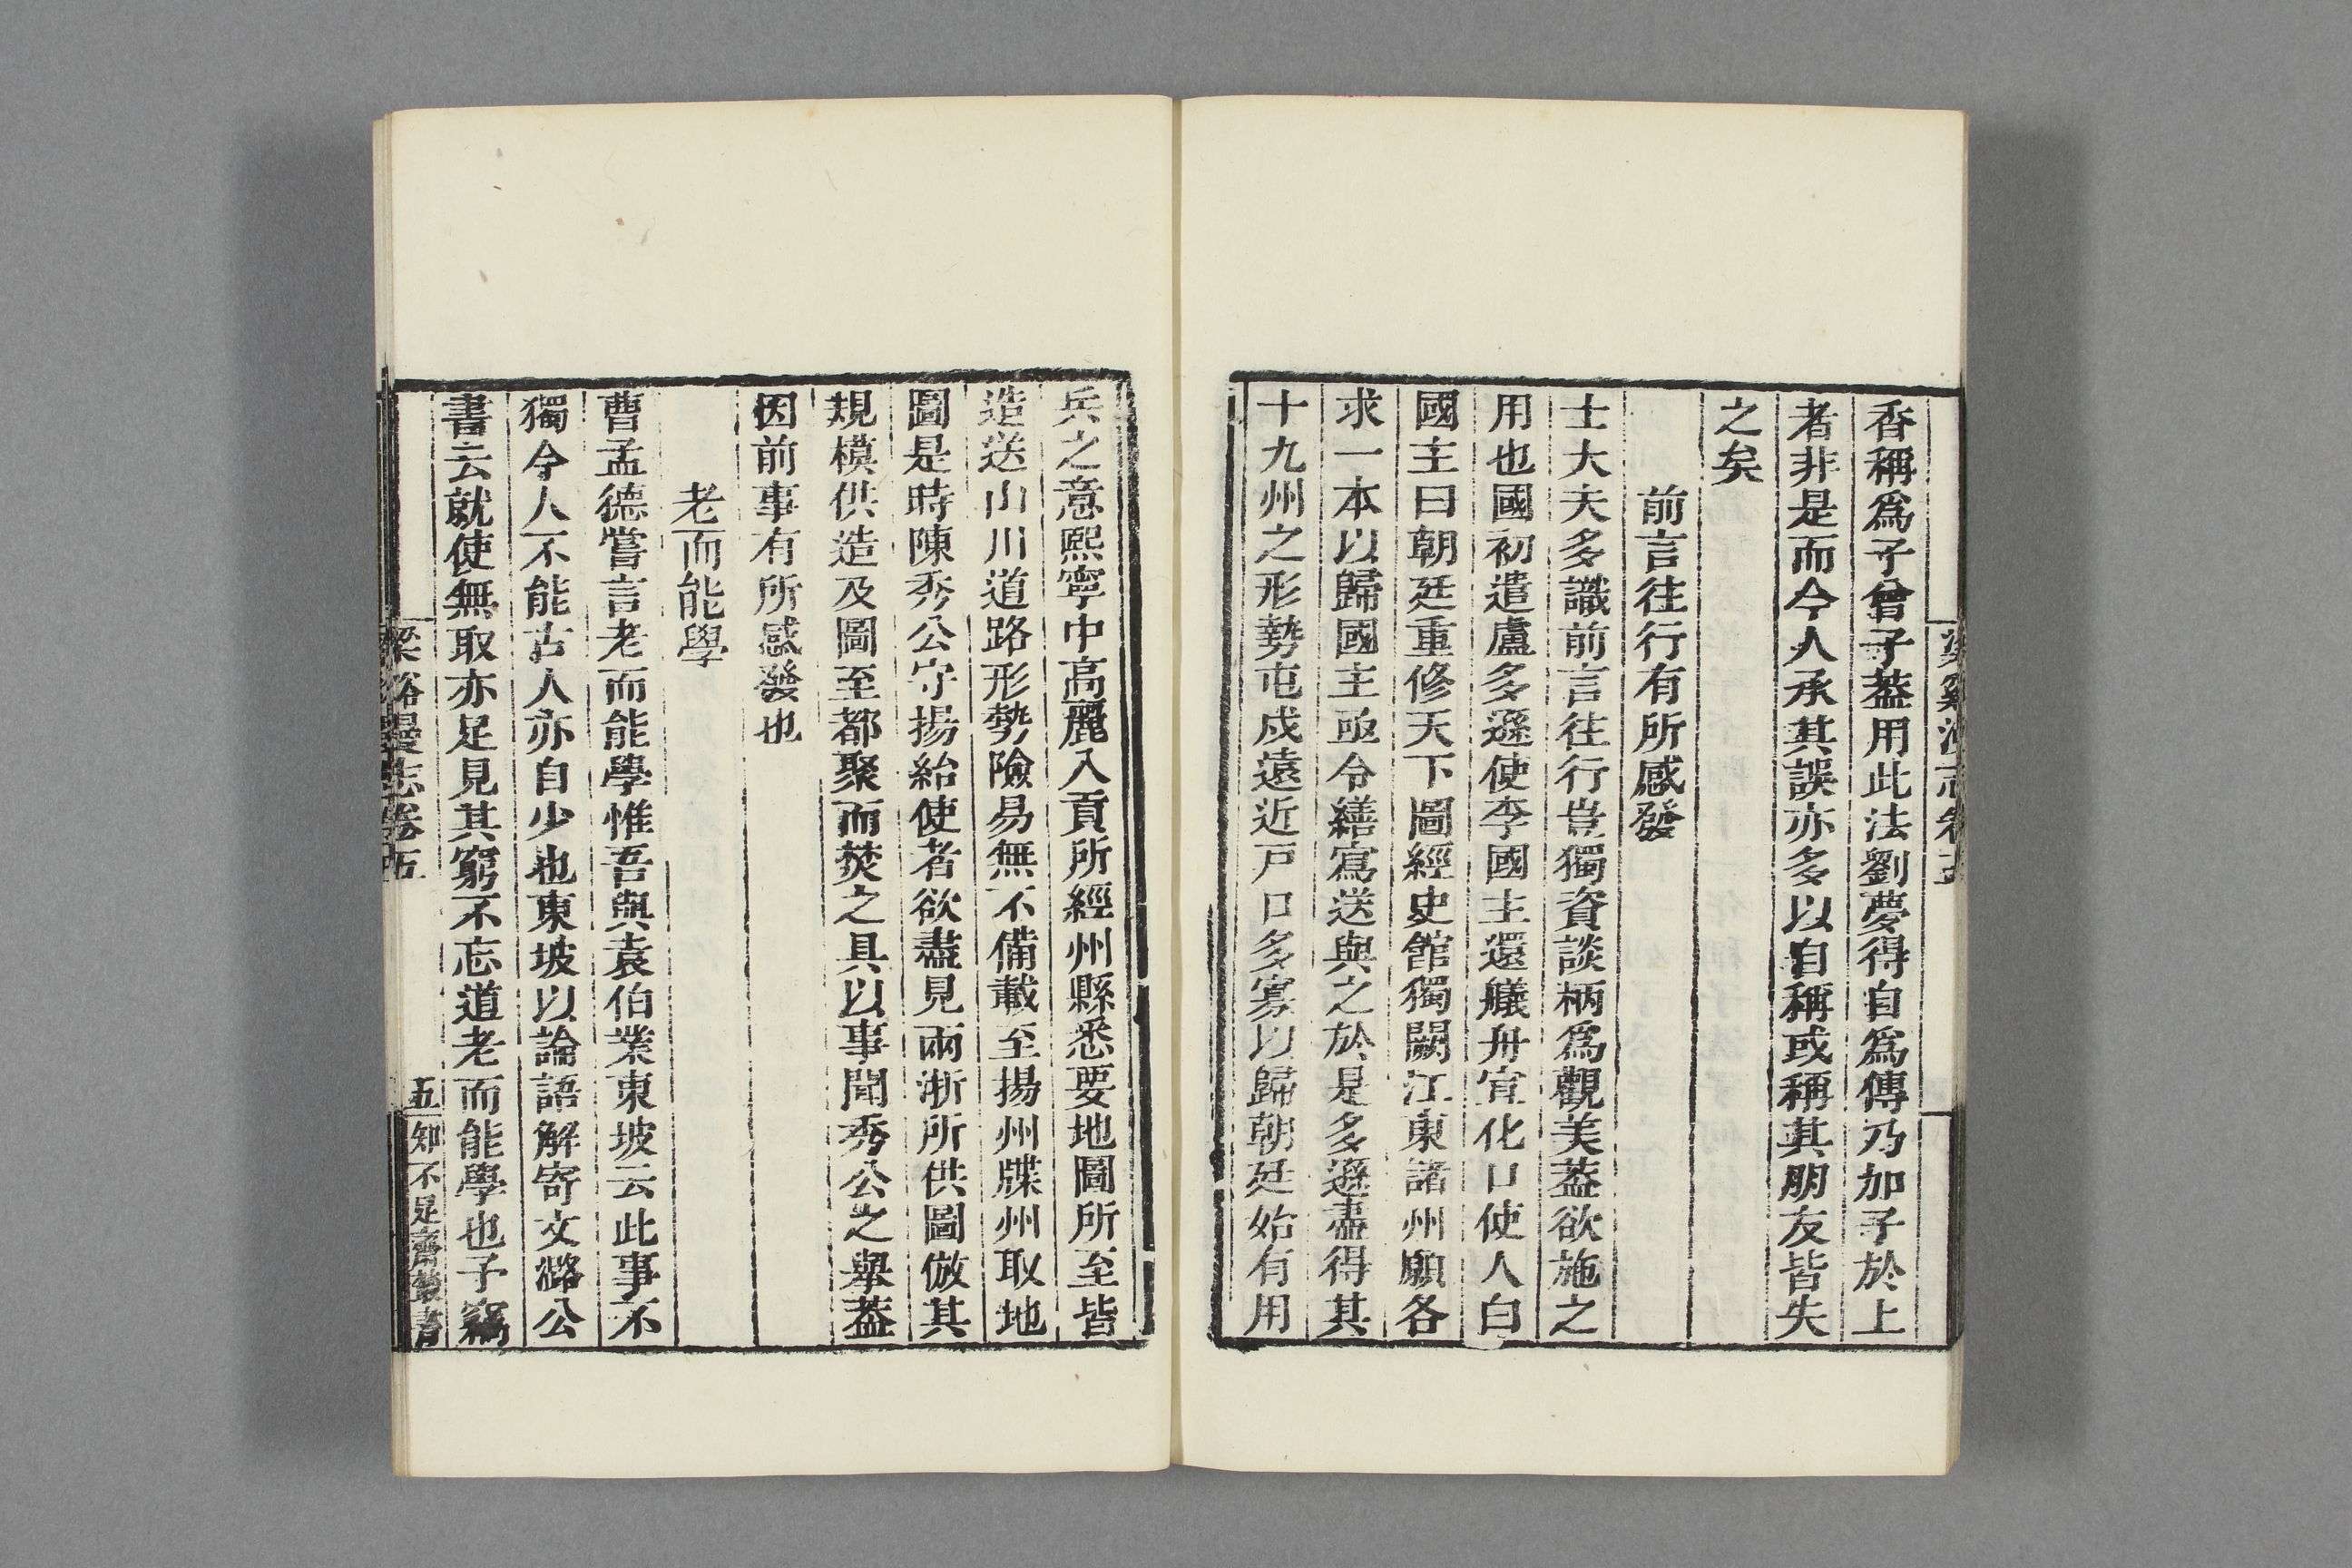 香稱爲子曾子葢用此法劉夢得自爲傳乃加子於上
者非是而今人承其誤亦多以自稱或稱其朋友皆失
之矣
前言往行有所感發
士大夫多識前言往行豈獨資談柄爲觀美葢欲施之
用也國初遣盧多遜使李國主還艤舟宣化口使人白
國主曰朝廷重修天下圖經史館獨闕江東諸州願各
求一本以歸國主亟令繕寫送與之於是多遜盡得其
十九州之形勢屯戍遠近戸口多寡以歸朝廷始有用
兵之意熙寧中高麗入貢所經州縣悉要地圖所至皆
造送山川道路形勢險易無不備載至揚州牒州取地
圖是時陳秀公守揚紿使者欲盡見兩浙所供圖倣其
規模供造及圖至都聚而焚之具以事聞秀公之舉葢
因前事有所感發也
老而能學
曹孟德嘗言老而能學惟吾與袁伯業東坡云此事不
獨今人不能古人亦自少也東坡以論語解寄文潞公
書云就使無取亦足見其窮不忘道老而能學也子竊
梁谿漫志卷五
五
知不足齋叢書